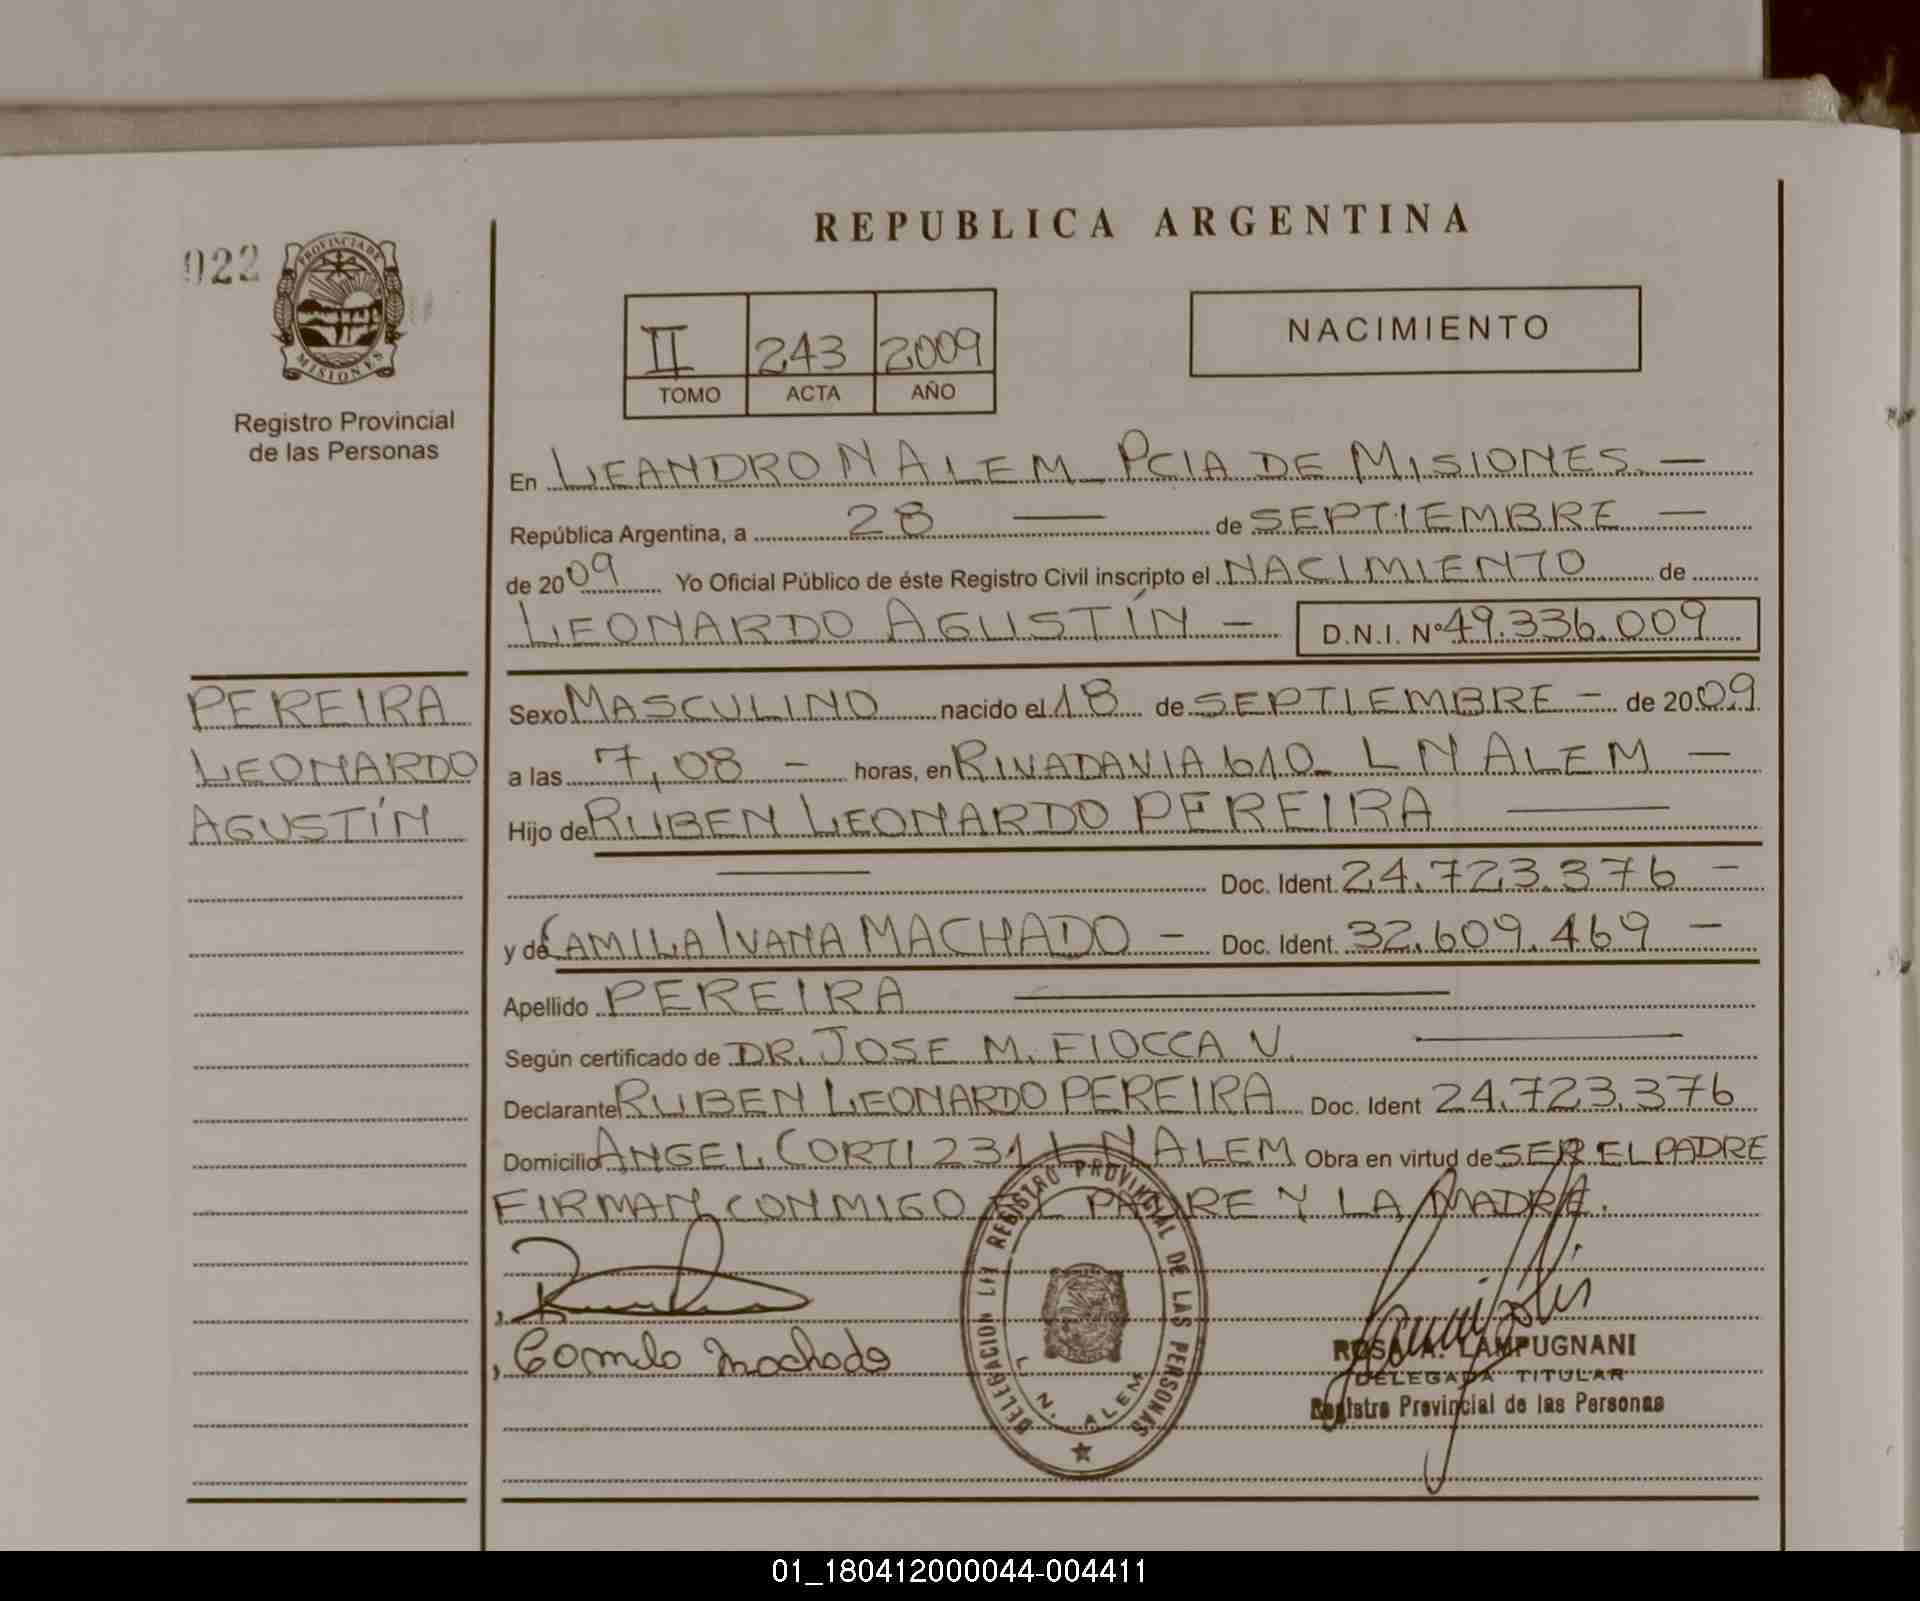 REPUBLICA ARGENTINA
022
PROVINCIA DE
MISIONES
Registro Provincial
de las Personas
II 243 2009
TOMO ACTA AÑO
NACIMIENTO
En LEANDRO N ALEM PCIA DE MISIONES. —
República Argentina, a 28 — de SEPTIEMBRE —
de 2009 Yo Oficial Público de éste Registro Civil inscripto el NACIMIENTO de
LEONARDO AGUSTÍN — D.N.I. Nº 49.336.009
PEREIRA
LEONARDO
AGUSTÍN
Sexo MASCULINO nacido el 18 de SEPTIEMBRE – de 2009
a las 7,08 – horas, en RIVADAVIA 610 L N ALEM —
Hijo de RUBEN LEONARDO PEREIRA —
— Doc. Ident. 24.723.376 –
y de CAMILA IVANA MACHADO – Doc. Ident. 32.609.469 –
Apellido PEREIRA —
Según certificado de DR. JOSE M. FIOCCA V. —
Declarante RUBEN LEONARDO PEREIRA Doc. Ident 24.723.376
Domicilio ANGEL CORTI 231 L N ALEM Obra en virtud de SER EL PADRE
FIRMAN CONMIGO EL PADRE Y LA MADRE.
Camila Machado
DELEGACION REGISTRO PROVINCIAL DE LAS PERSONAS
L. N. ALEM
ROSA A. LAMPUGNANI
DELEGADA TITULAR
Registro Provincial de las Personas
01_180412000044-004411